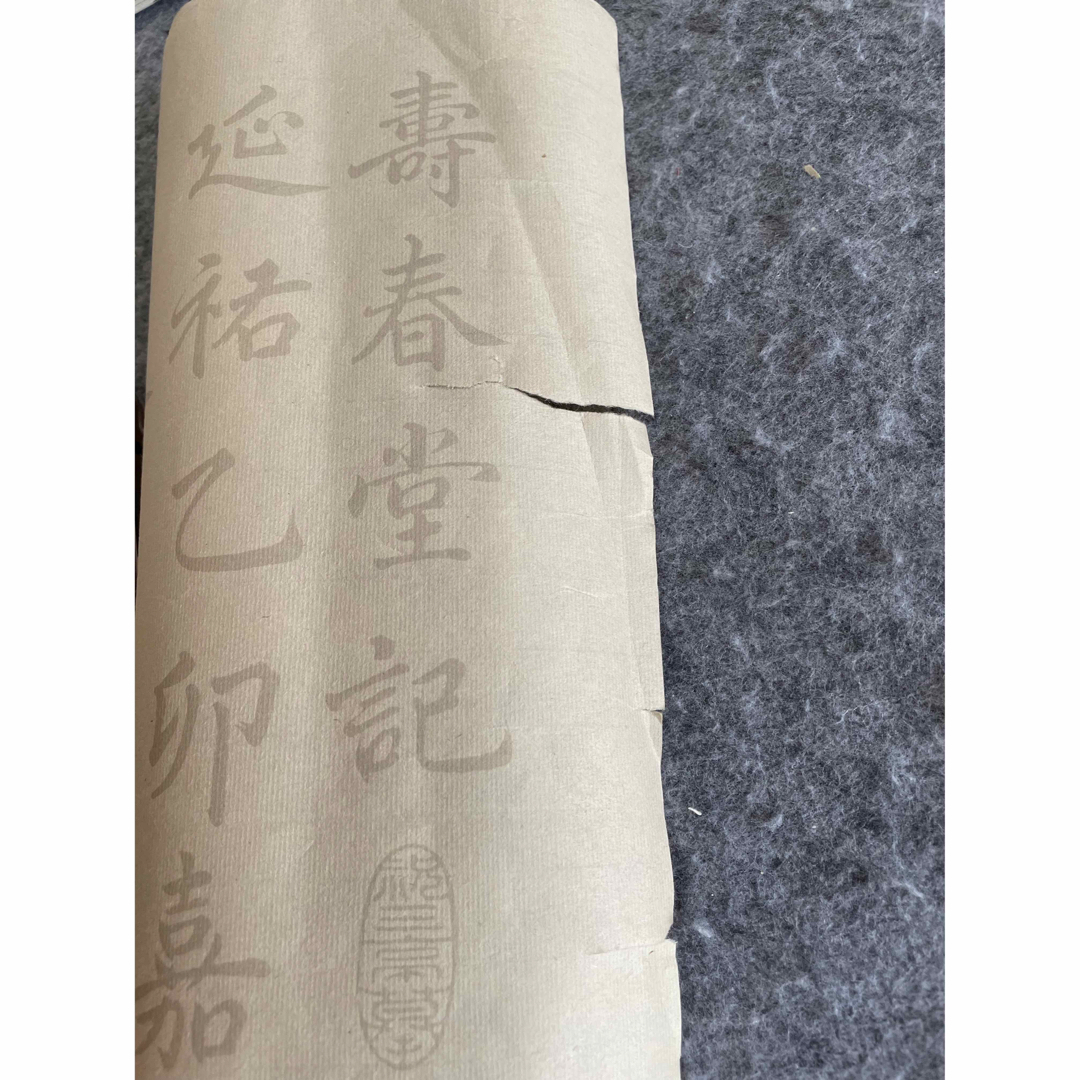 壽春堂記
延祐乙卯嘉